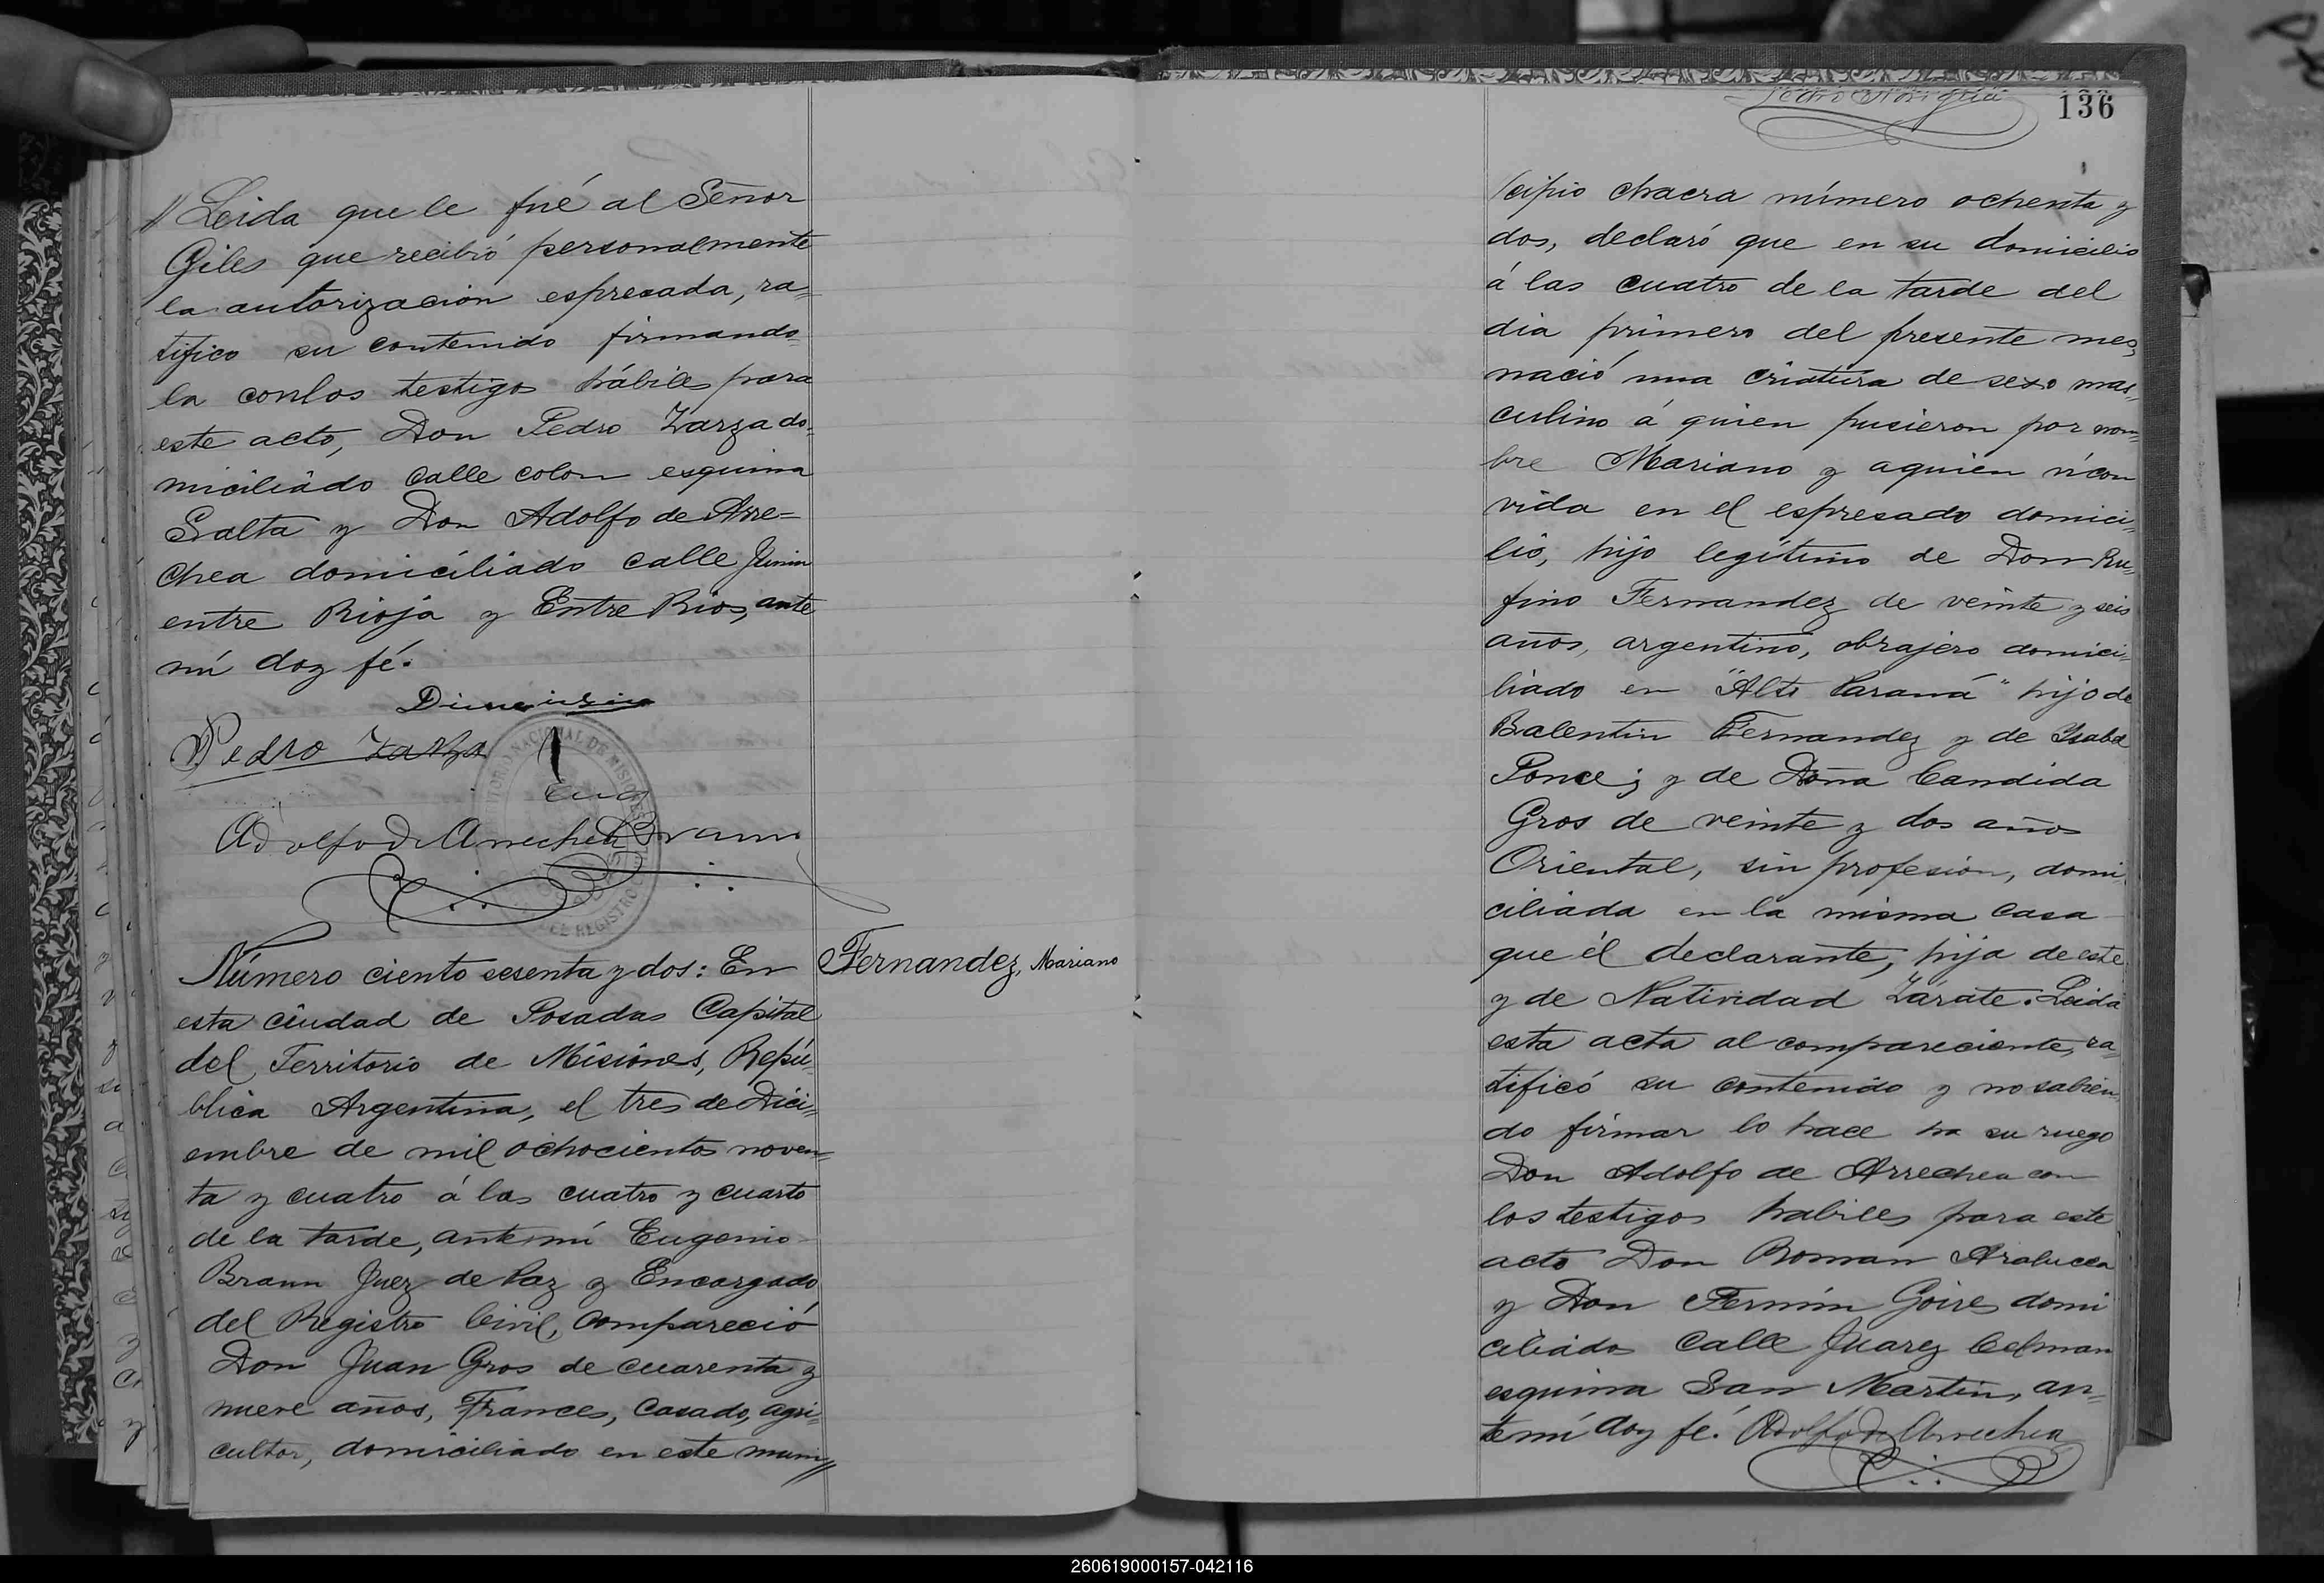 // Leida que le fué al Señor
Giles que recibió personalmente
la autorización espresada, ra=
tifico su contenido firmando
la conlos testigos hábiles para
este acto, Don Pedro Zarza do=
miciliádo Calle colon esquina
Salta y Don Adolfo de Arre=
chea domiciliádo calle Junin
entre Rioja y Entre Rios, ante
mi doy fé.
Pedro Zarza
Eug
Adolfo de Arrechea Braun
Número ciento sesenta y dos: En
Fernandez, Mariano
esta ciudad de Posadas Capital
del Territorio de Misiones, Repú=
blica Argentina, el tres de Dici=
embre de mil ochocientos noven=
ta y cuatro á las cuatro y cuarto
de la tarde, ante mí Eugenio
Braun Juez de Paz y Encargado
del Registro Civil, compareció
Don Juan Gros de cuarenta y
nueve años, Frances, Casado, agri=
cultor, domiciliado en este muni//
136
/cipio chacra número ochenta y
dos, declaró que en su domicilio
á las cuatro de la tarde del
dia primero del presente mes,
nació una criatura de sexo mas=
culino á quien pusieron por nom=
bre Mariano y aquien ví con
vida en el espresado domici=
lio, hijo legítimo de Don Ru=
fino Fernandez de veinte y seis
años, argentino, obrajero domici=
liado en "Alto Paraná" hijo de
Balentin Fernandez y de Ysabel
Ponce; y de Doña Candida
Gros de veinte y dos años
Oriental, sin profesion, domi=
ciliada en la misma casa
que él declarante, hija de este
y de Natividad Zárate. Leida
esta acta al compareciente, ra=
tificó su contenido y no sabien=
do firmar lo hace ha su ruego
Don Adolfo de Arrechea con
los testigos habiles para este
acto Don Roman Aralucea
y Don Fermin Goires domi
ciliádos Calle Juarez Celman
esquina San Martin, an=
te mí doy fé. Adolfo de Arrechea
260619000157-042116